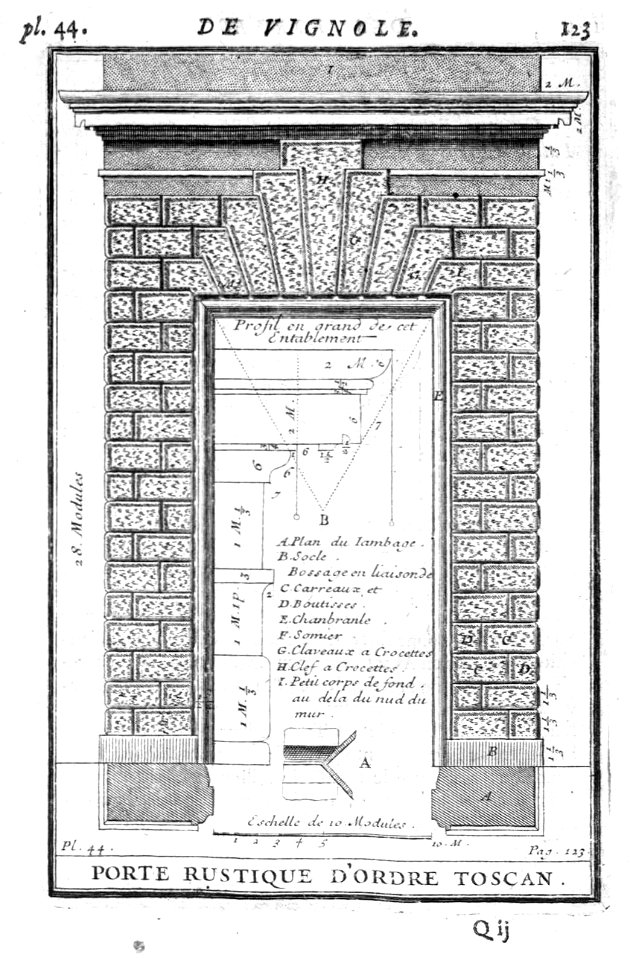 pl. 44. DE VIGNOLE. 123
I
2 M.
2 M
1/3
M 1/3
H
G
G
F
Profil en grand de cet
Entablement
2 M.
2 M.
6
7
E
6
6
7
B
28 Modules
1 M. 1/3
1 M 1 p. 3
1 M. 1/3
A. Plan du Iambage.
B. Socle.
Bossage en liaison de
C Carreaux et
D. Boutisses.
E. Chanbranle.
F. Somier
G. Claveaux a Crocettes
H. Clef a Crocettes.
I. Petit corps de fond.
au dela du nud du
mur.
D C
C D
1/3
1/3
1/3
B
A
A
Eschelle de 10 Modules.
1 2 3 4 5 10. M.
Pl. 44. Pag. 123
PORTE RUSTIQUE D'ORDRE TOSCAN.
Q ij